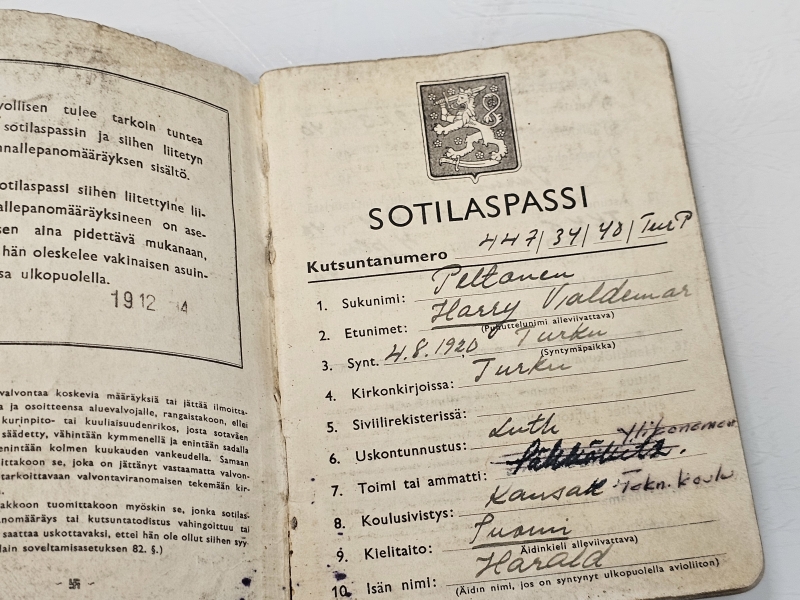 vollisen tulee tarkoin tuntea
sotilaspassin ja siihen liitetyn
nnallepanomääräyksen sisältö.
otilaspassi siihen liitettyine lii-
allepanomääräyksineen on ase-
sen aina pidettävä mukanaan,
hän oleskelee vakinaisen asuin-
sa ulkopuolella.
19.12 4
valvontaa koskevia määräyksiä tai jättää ilmoitta-
a ja osoitteensa aluevalvojalle, rangaistakoon, ellei
kurinpito- tai kuuliaisuudenrikos, josta sotaväen
säädetty, vähintään kymmenellä ja enintään sadalla
enintään kolmen kuukauden vankeudella. Samaan
mittakoon se, joka on jättänyt vastaamatta valvon-
tarkoittavaan valvontaviranomaisen tekemään kir-
akkoon tuomittakoon myöskin se, jonka sotilas-
panomääräys tai kutsuntatodistus vahingoittuu tai
saattaa uskottavaksi, ettei hän ole ollut siihen syy
lain soveltamisasetuksen 82. §.)
SOTILASPASSI
Kutsuntanumero 447/34/40/TurP
1. Sukunimi: Peltonen
2. Etunimet: Harry Valdemar
(Puhuttelunimi alleviivattava)
3. Synt. 4.8.1920 Turku
(Syntymäpaikka)
4. Kirkonkirjoissa: Turku
5. Siviilirekisterissä:
6. Uskontunnustus: Luth
7. Toimi tai ammatti:
8. Koulusivistys: Kansak Tekn. koulu
9. Kielitaito: Suomi
Äidinkieli alleviivattava)
10. Isän nimi: Harald
(Äidin nimi, jos on syntynyt ulkopuolella avioliiton)